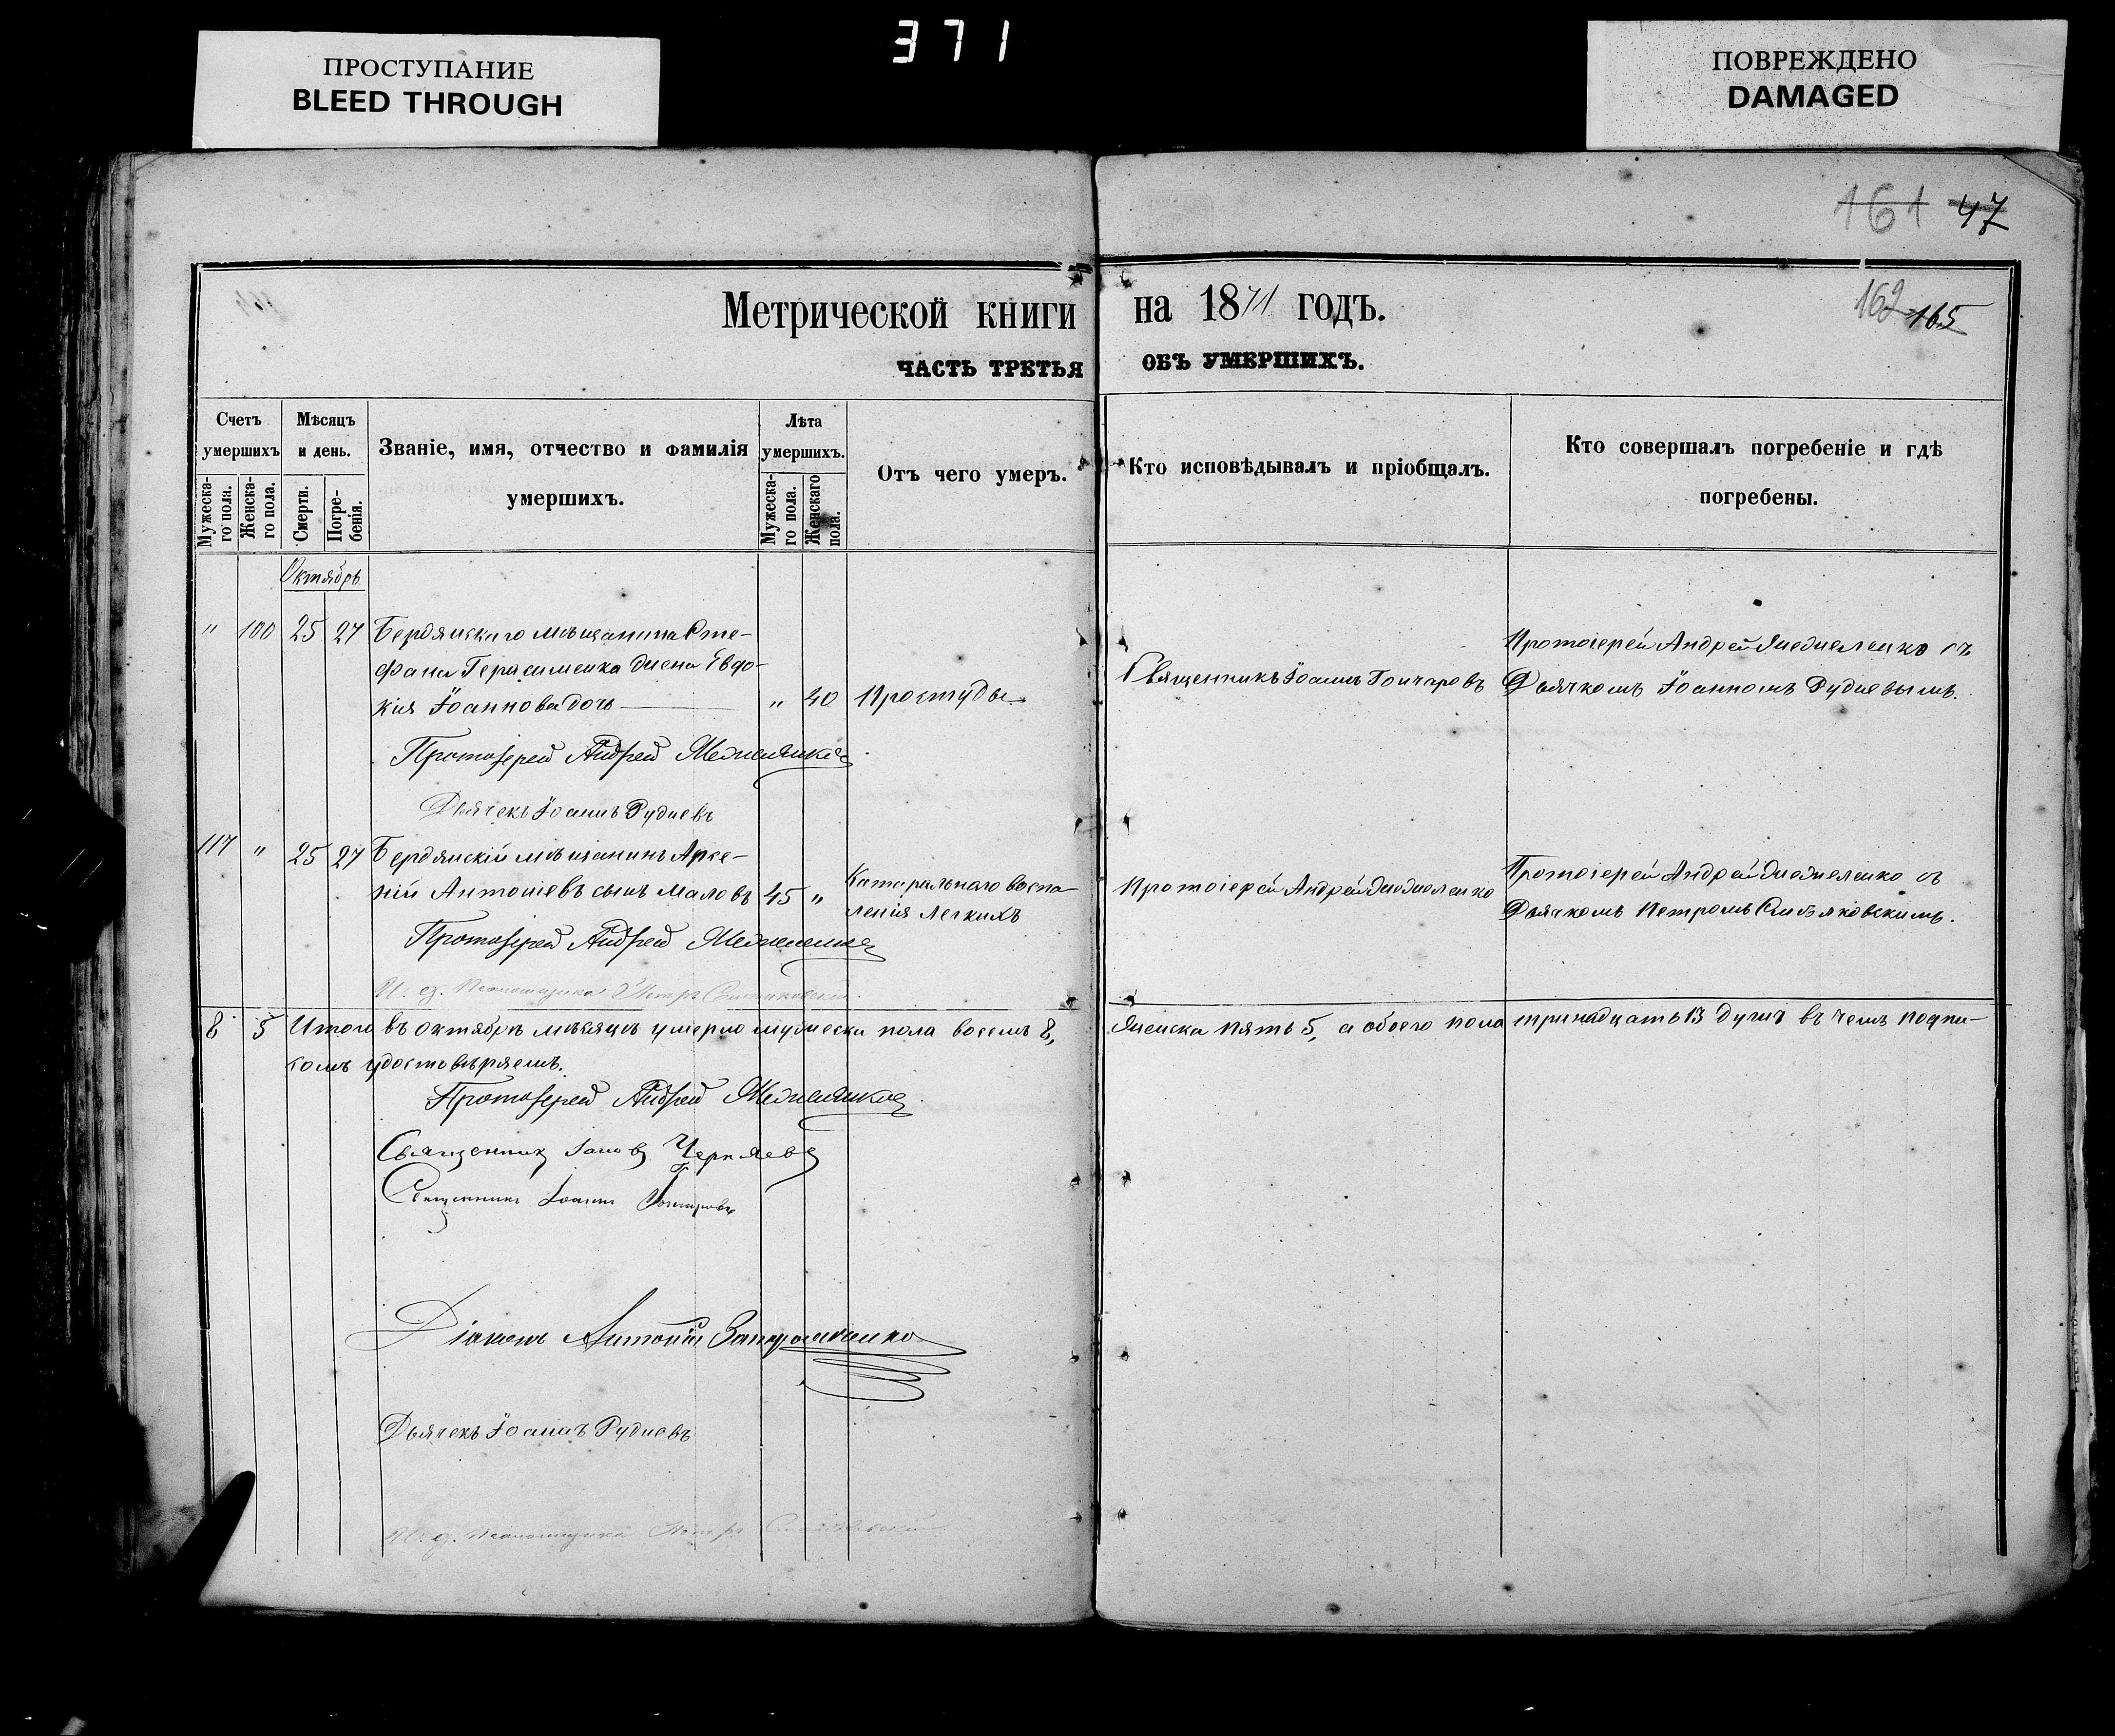 ПРОСТУПАНИЕ
BLEED THROUGH
371
ПОВРЕЖДЕНО
DAMAGED
161 47
162 165
Метрической книги на 1871 годъ.
ЧАСТЬ ТРЕТЬЯ ОБЪ УМЕРШИХЪ.
Счетъ умершихъ
Мужеска-го пола.
Женска-го пола.
Мѣсяцъ и день.
Смерти.
Погре-бенія.
Званіе, имя, отчество и фамилія
умершихъ.
Лѣта умершихъ.
Мужеска-го пола.
Женскаго пола.
Отъ чего умеръ.
Кто исповѣдывалъ и пріобщалъ.
Кто совершалъ погребеніе и гдѣ
погребены.
Октябрь
" 100 25 27 Бердянскаго мѣщанина Сте-
фана Герасименка жена Евдо-
кія Іоаннова дочь " 40 Простуды
Священникъ Іоаннъ Гончаровъ
Протоіерей Андрей съ
Дьячкомъ Іоанномъ Рудневымъ.
Протоіерей Андрей
Дьячекъ Іоаннъ Рудневъ
117 " 25 27 Бердянскій мѣщанинъ Арсе-
ній Антоніевъ сынъ Маловъ 45 "
Катаральнаго воспа-
ленія легкихъ
Протоіерей Андрей
Протоіерей Андрей съ
Дьячкомъ Петромъ
Протоіерей Андрей
И. д. Псаломщика Петръ
8 5 Итого въ октябрѣ мѣсяцѣ умерло мужеска пола восемь 8, женска пять 5, а обоего пола тринадцать 13 душъ въ чемъ подпи-
сомъ удостовѣряемъ.
Протоіерей Андрей
Священникъ Іаковъ Черняевъ
Священникъ Іоаннъ Гончаровъ
Діаконъ Антоній
Дьячекъ Іоаннъ Рудневъ
И. д. Псаломщика Петръ